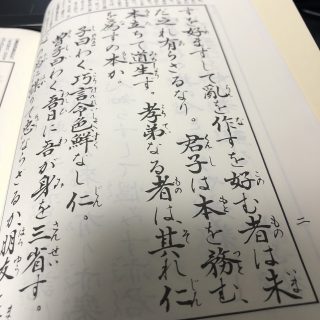 二
すを好まずして亂を作すを好む者は未
だ之れ有らざるなり。君子は本を務む
本立ちて道生ず。孝弟なる者は其れ仁
を為すの本か。
子曰わく、巧言令色鮮なし仁。
曽子曰わく、吾日に吾が身を三省す。
ならざるか、朋友と